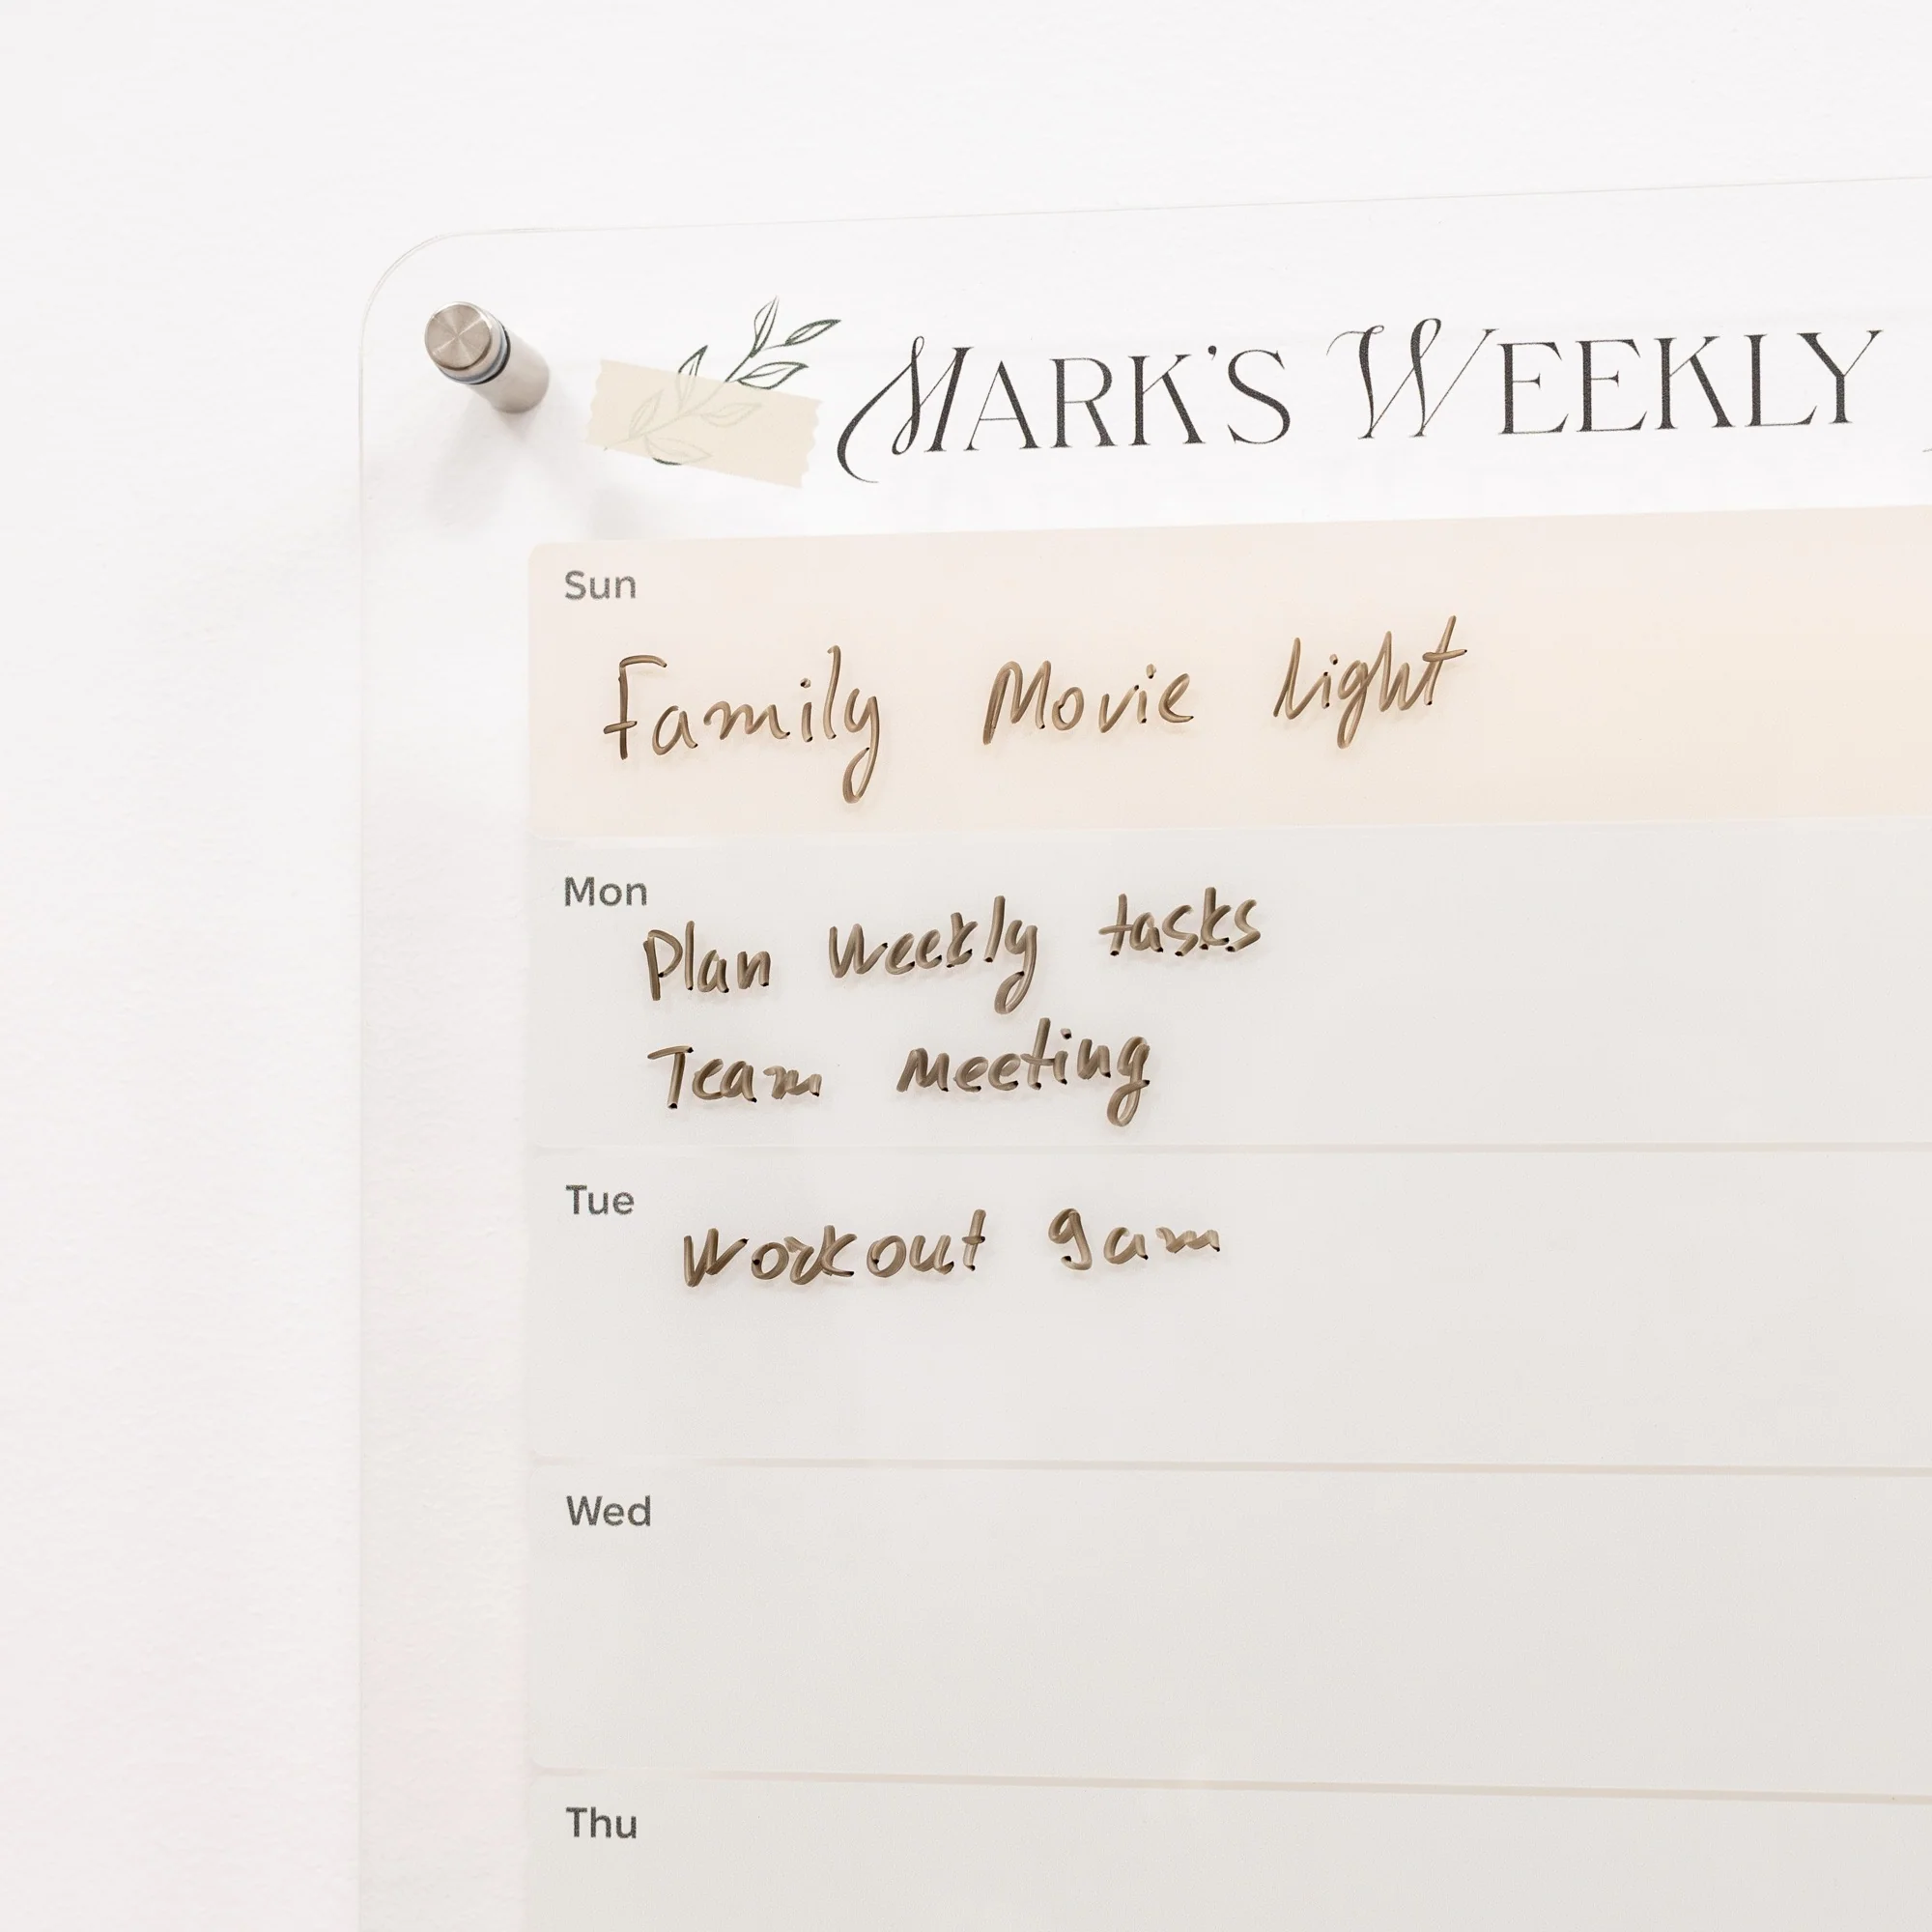 MARK'S WEEKLY
Sun
Family Movie Night
Mon
Plan Weekly tasks
Team Meeting
Tue
Workout 9am
Wed
Thu